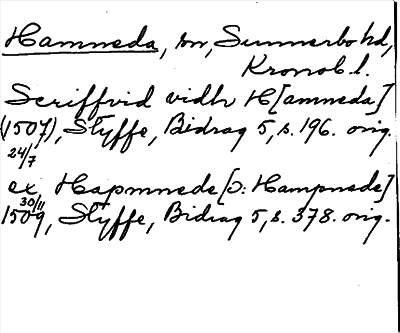 Hamneda, sn, Sunnerbo hd,
Kronob. l.
Scriffvid vidh H[amneda]
(1507), Styffe, Bidrag 5, s. 196. orig.
24/7
ex, Hapmnede [ɔ: Hampnede]
30/11
1509, Styffe, Bidrag 5, s. 378. orig.